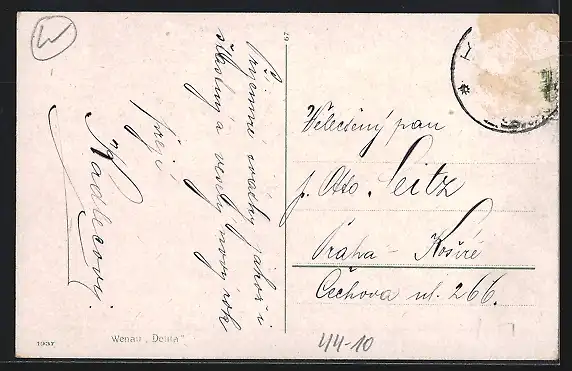 W
P.
Příjemné svátky jakož i
šťastný a veselý nový rok
přejí
Kadlecovi.
29
Velectěný pan
p. Otto Seitz
Praha - Košíře
Čechova ul. 266.
44-10
1937
Wenau „Delila"